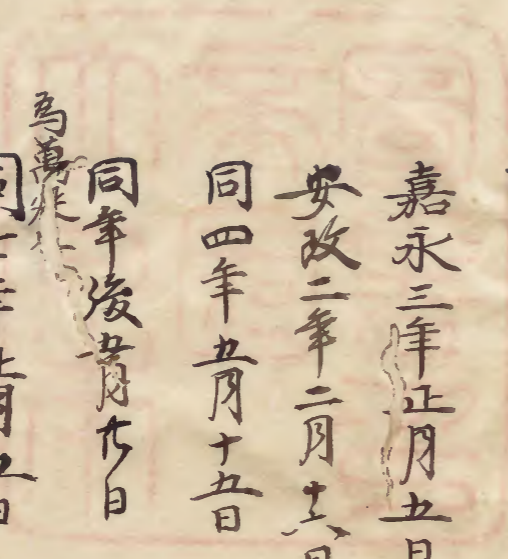 嘉永三年正月五日
安政二年二月十六日
同四年五月十五日
同年後五月 日
為萬
正月五日